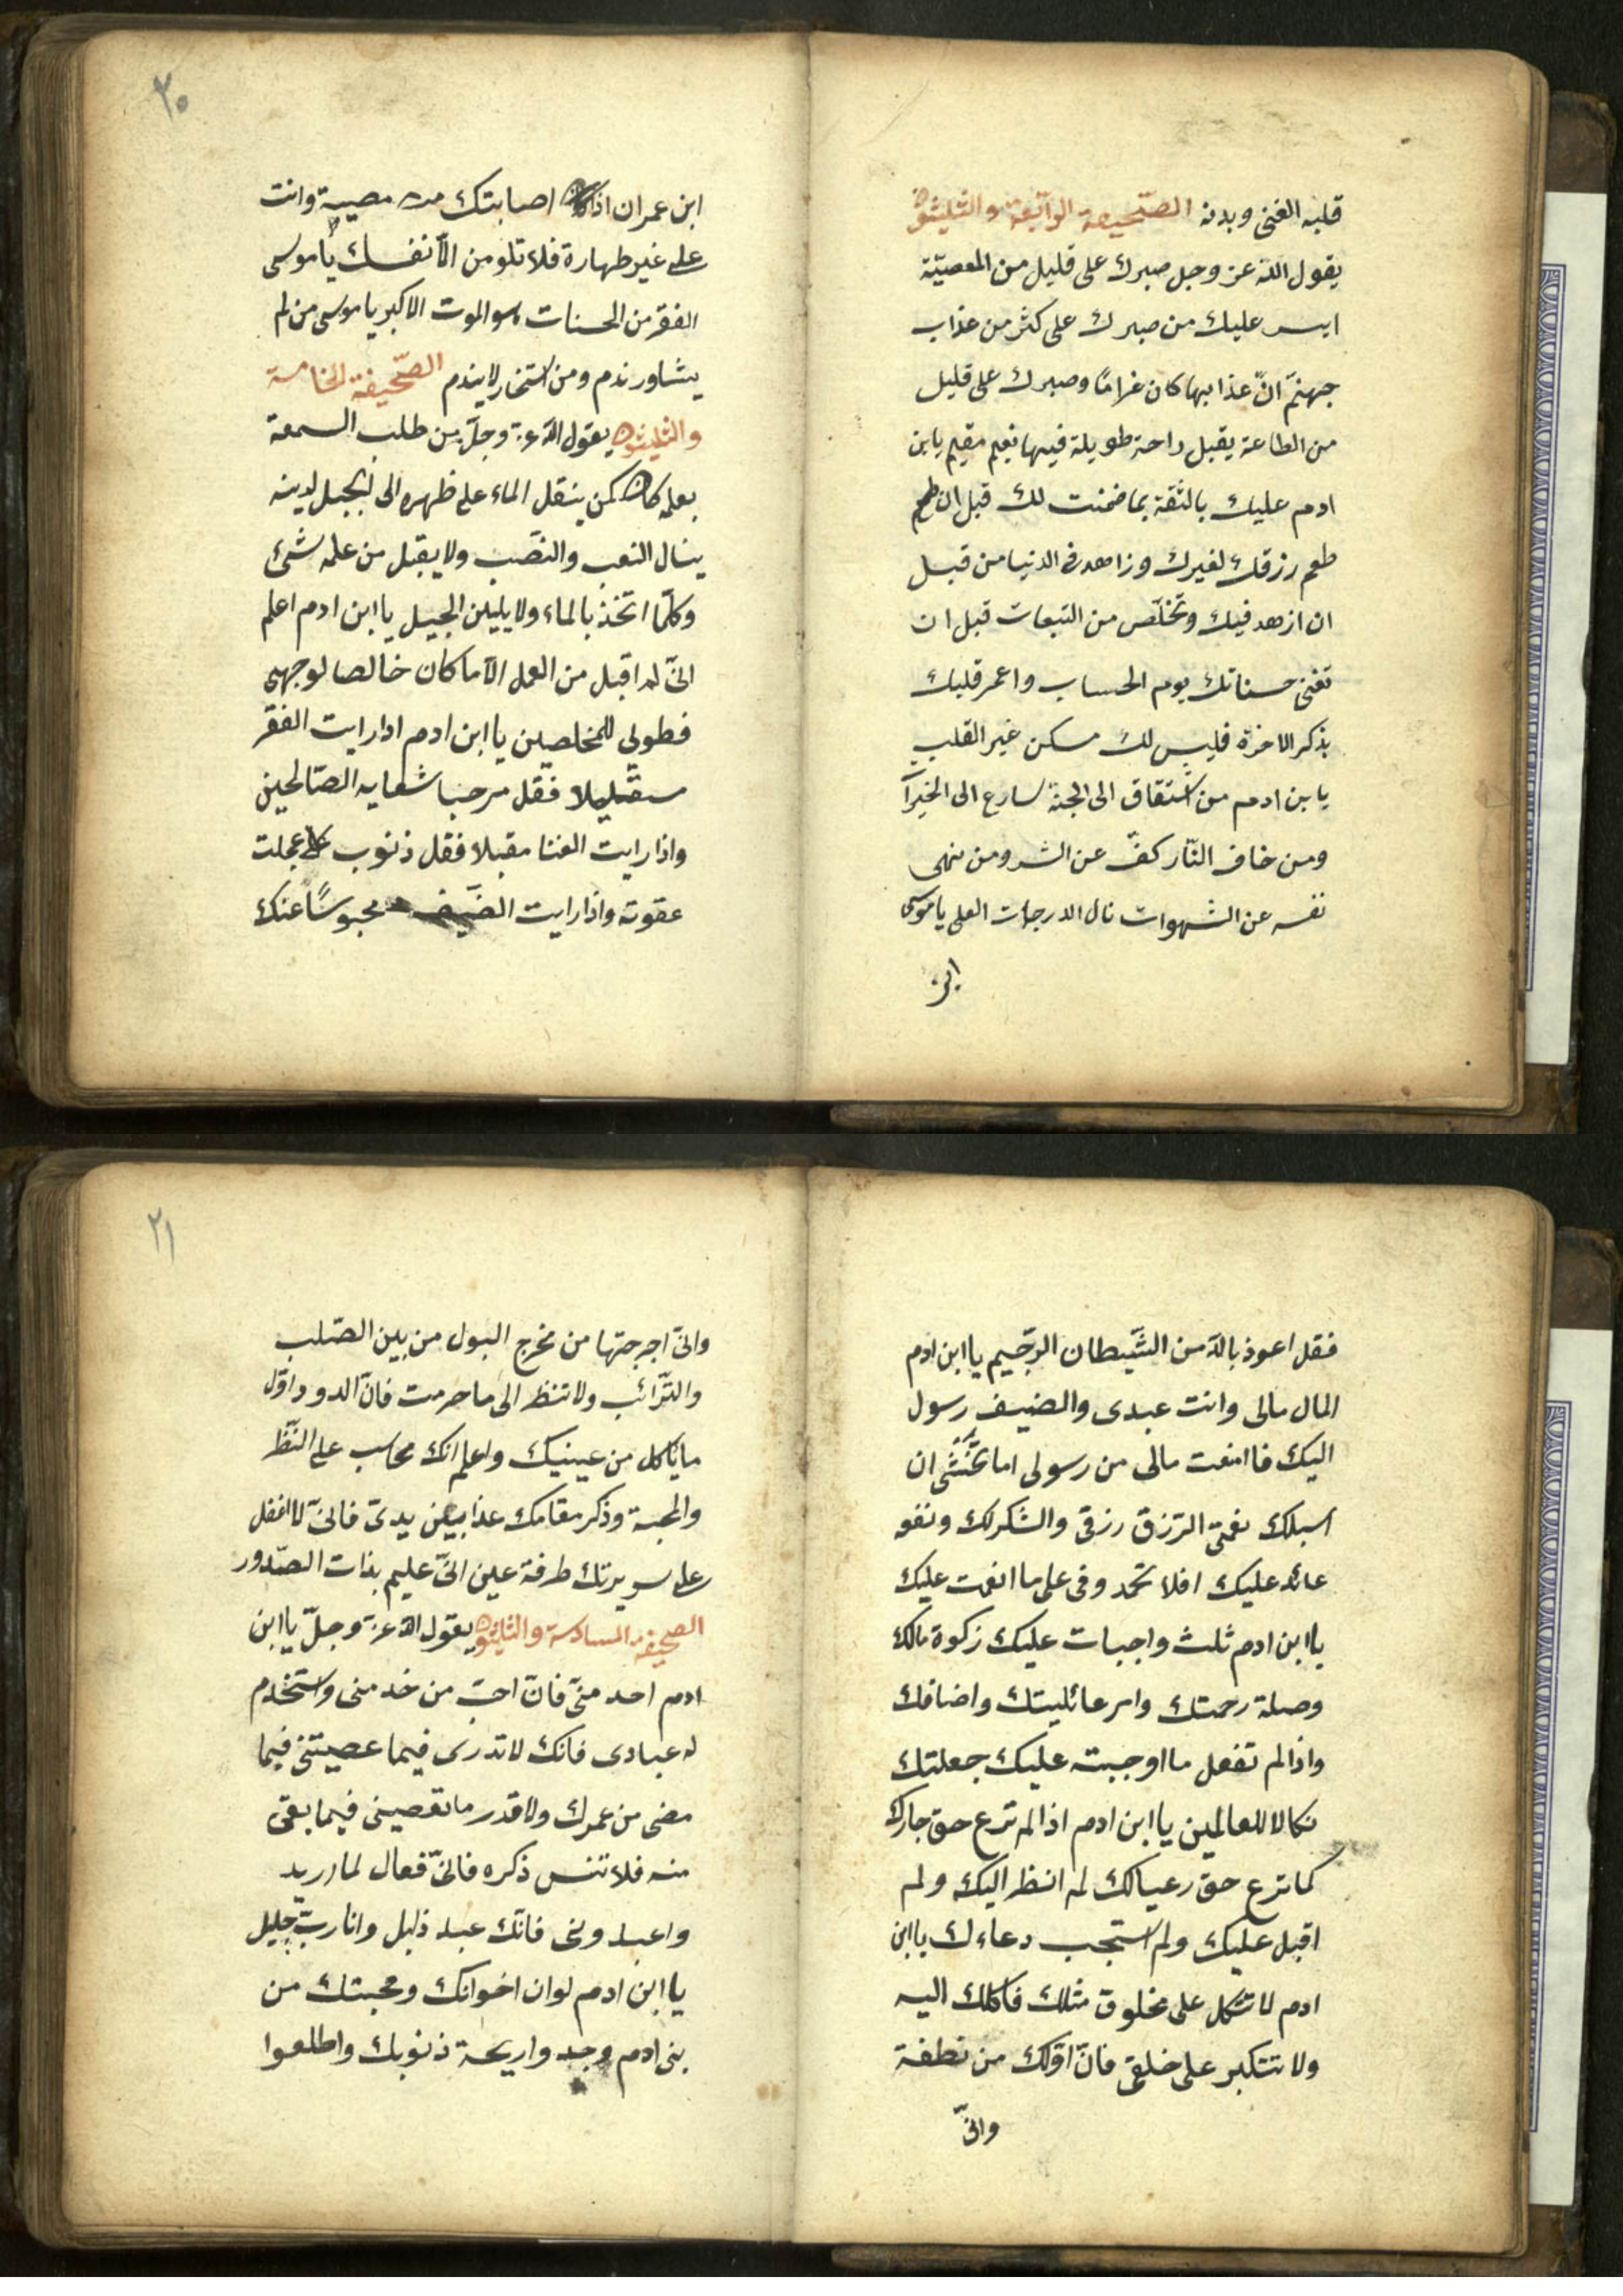 قلبه الغنى وبدنه الصّحيفة الرّابعة والثليثون
يقول اللّه عز وجل صبرك على قليل من المعصيّة
ايسر عليك من صبرك على كثر من عذاب
جهنّم انّ عذابها كان غرامًا وصبرك على قليل
من الطاعة يقبل راحة طويلة فيها نعيم مقيم يابن
ادم عليك بالثقة بما ضمنت لك قبل ان
طعم رزقك لغيرك وزاهد فى الدنيا من قبل
ان ازهد فيك وتخلّص من التبعات قبل ان
تفنى حسناتك يوم الحساب واعمر قلبك
بذكر الاخرة فليس لك مسكن غير القلب
يابن ادم من اشتقاق الى الجنة سارع الى الخيرآ
ومن خاف النّار كفّ عن الشر ومن نهى
نفسه عن الشهوات نال الدرجات العلى ياموسى
ابن
٢٠
ابن عمران اذا اصابتك مصيبة وانت
على غير طهارة فلا تلومن الّا نفسك ياموسى
الفقر من الحسنات هو الموت الاكبر ياموسى من لم
يشاور ندم ومن استخار لا يندم الصّحيفة الخامسة
والثليثون يقول اللّه عز وجلّ من طلب السمعة
بعلمه كان كمن ينقل الماء على ظهره الى الجبل لدينه
ينال التعب والنصّب ولا يقبل من علمه شىء
وكلّما اتّخذ بالماء ولا يليلن الجيل يا ابن ادم اعلم
انّى لم اقبل من العمل الّا ما كان خالصا لوجهى
فطوبى للمخلصين يا ابن ادم ادا رايت الفقر
فقل مرحبا شعايه الصّالحين
واذا رايت الغنا مقبلا فقل ذنوب عجلت
عقوته واذا رايت الضّيف محبوسًا عنك
فقل اعوذ باللّه من الشّيطان الرّجيم يا ابن ادم
المال مالى وانت عبدى والضيف رسول
اليك فاا منعت مالى من رسولى اما تخشى ان
اسبلك نعمتى الرّزق رزقى والشكر لك ونفو
عائد عليك افلا تحمد وفى على ما انعمت عليك
يا ابن ادم ثلث واجبات عليك زكوة مالك
وصلة رحمتك وامر عائليتك واضافك
واذا لم تفعل ما اوجبته عليك جعلتك
نكالا للعالمين يا ابن ادم اذا لم ترع حق جارك
كما ترع حق رعيالك لم انظر اليك ولم
اقبل عليك ولم استجب دعاءك يا ابن
ادم لا تتكل على مخلوق مثلك فاكلك اليه
ولا تتكبر على خلقى فانّ اوّلك من نطفة
وانّى
٢١
وانّى اجرجتها من مخرج البول من بين الصّلب
والتّرائب ولا تنظر الى ما حرمت فانّ الدود اوّل
ما ياكل من عينيك واعلم انك محاسب على النّظر
والمحبة وذكر مقامك عذا بين يدىّ فانّى لا اغفل
على سريرتك طرفة عين انّى عليم بذات الصّدور
الصحيفة السادسة والثليثون يقول اللّه عز وجلّ يا ابن
ادم احد منى فانّ احبّ من خدمنى واستخدم
له عبادى فانك لا تدرى فيما عصيتنى فيما
مضى من عمرك ولا قدر ما تعصينى فيما بقى
منه فلا تنس ذكره فانّى فعال لما اريد
واعبدونى فانّك عبد ذليل وانا ربّ جليل
يا ابن ادم لو ان اخوانك ومحبتك من
بنى ادم وجدوا ريحة ذنوبك واطلعوا